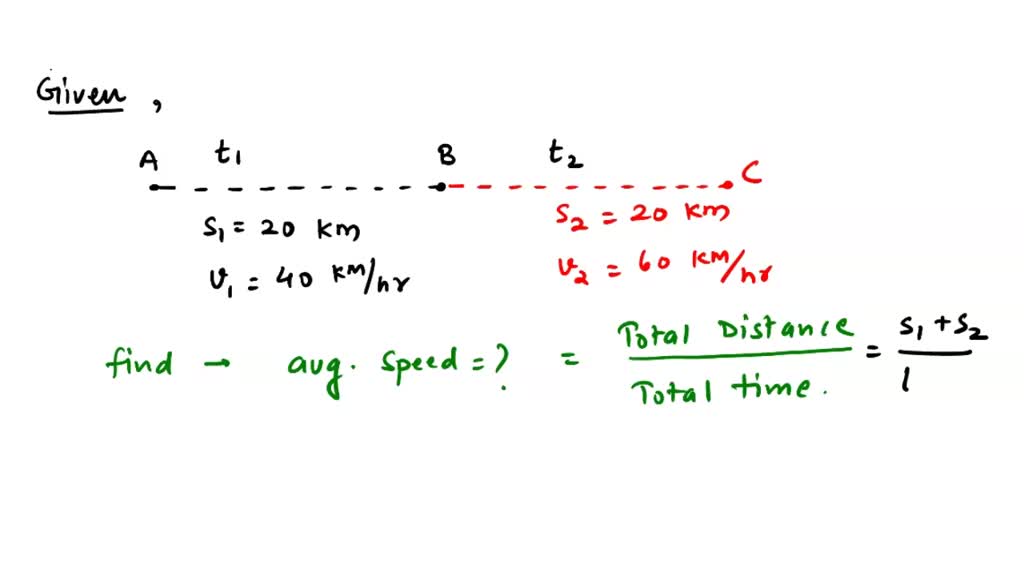 Given ,
A t₁ B t₂ C
S₁ = 20 km
S₂ = 20 km
v₁ = 40 km/hr
v₂ = 60 km/hr
find → aug. speed = ? = Total Distance / Total time. = S₁ + S₂ / l